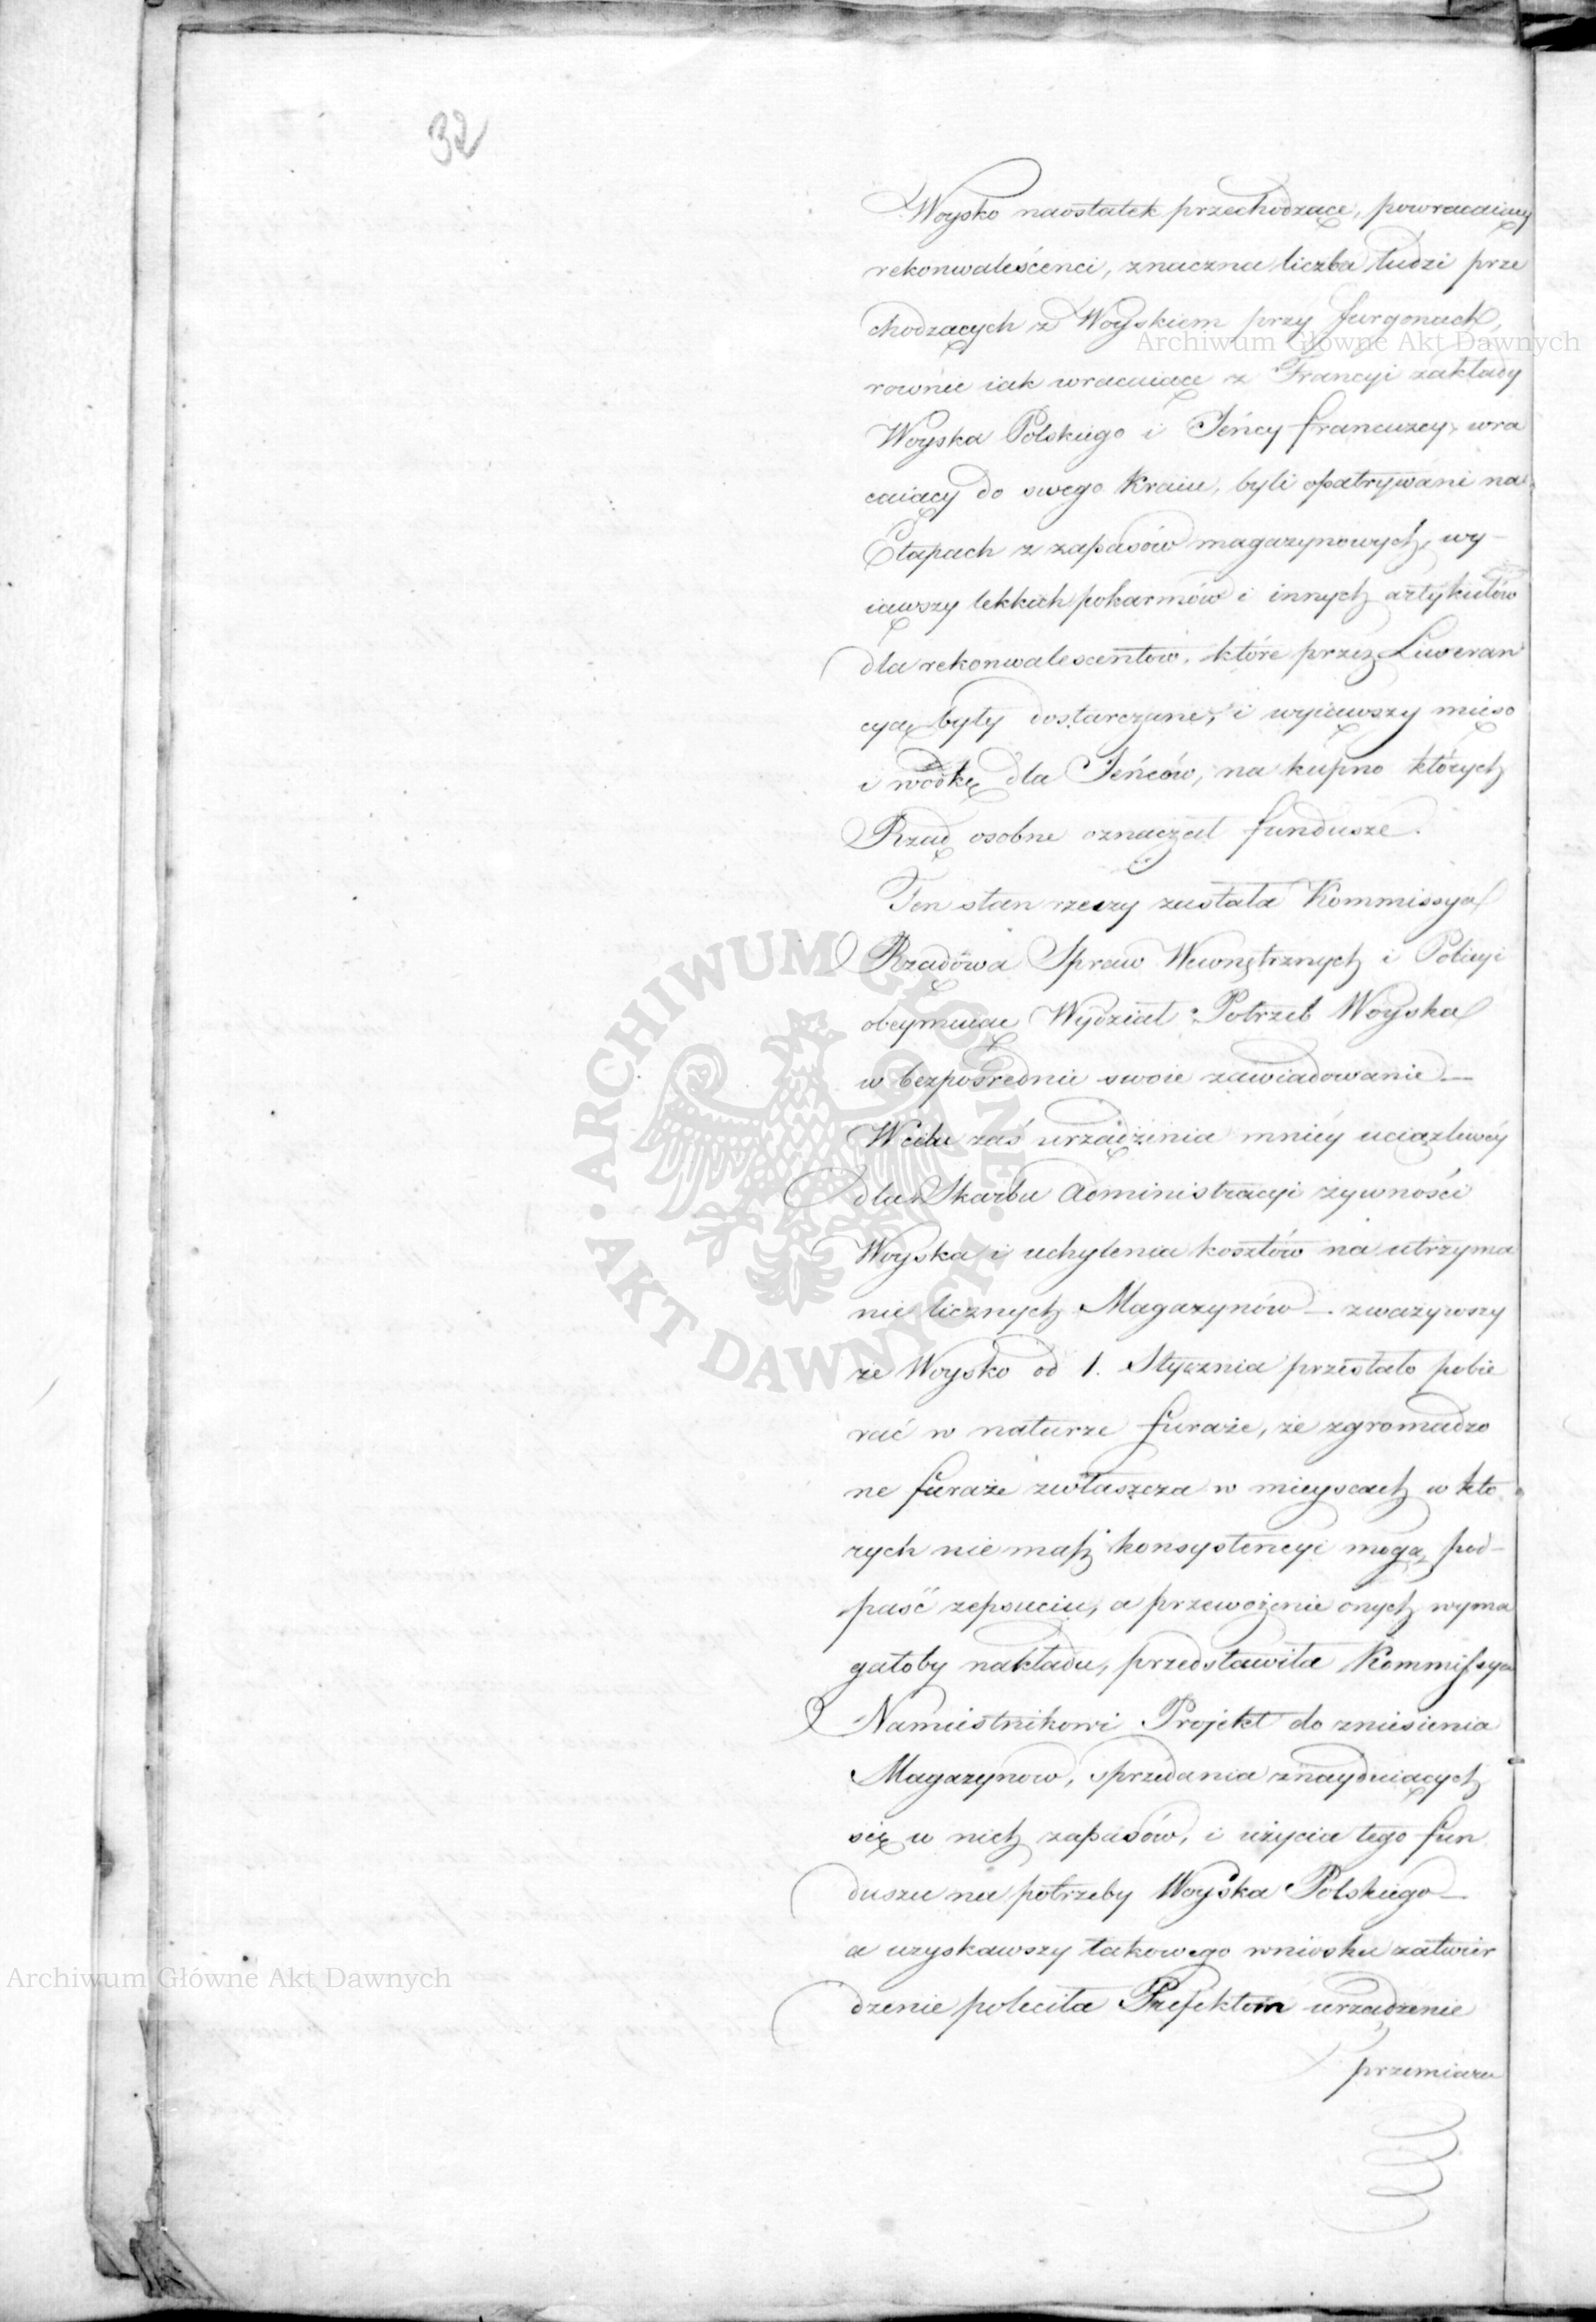 32
Woysko naostatek przechodzące, powracaiący
rekonwalesćenci, znaczna liczba ludzi prze
chodzących z Woyskiem przy furgonach,
Archiwum Główne Akt Dawnych
rownie iak wracaiące z Francyi zakłady
Woyska Polskiego i Jeńcy francuzcy wra
caiący do swego Kraiu, byli opatrywani na
Etapach z zapasów magazynowych, wy-
iąwszy lekkich pokarmów i innych artykułów
dla rekonwalescentow, które przez Liweran
cyą były dostarczane, i wyiąwszy mięso
i wódkę dla Jeńców, na kupno których
Rząd osobne oznaczał fundusze.
Ten stan rzeczy zastała Kommissya
Rządowa Spraw Wewnętrznych i Policyi
obeymuiąc Wydział Potrzeb Woyska
w bezpośrednie swoie zawiadowanie —
W celu zaś urządzenia mniéy uciążliwéy
dla Skarbu Administracyi żywności
Woyska i uchylenia kosztów na utrzyma
nie licznych Magazynów — zważywszy
że Woysko od 1. Stycznia przestało pobie
rać w naturze furaże, że zgromadzo
ne furaże zwłaszcza w mieyscach w któ
rych nie masz konsystencyi mogą pod-
paść zepsuciu, a przewożenie onych wyma
gałoby nakładu, przedstawiła Kommissya
Namiestnikowi Projekt do zniesienia
Magazynow, sprzedania znayduiących
się w nich zapasów, i użycia tego fun
duszu na potrzeby Woyska Polskiego —
a uzyskawszy takowego wniosku zatwier
Archiwum Główne Akt Dawnych
dzenie poleciła Prefektom urządzenie
przemiaru
ARCHIWUM GŁÓWNE
AKT DAWNYCH